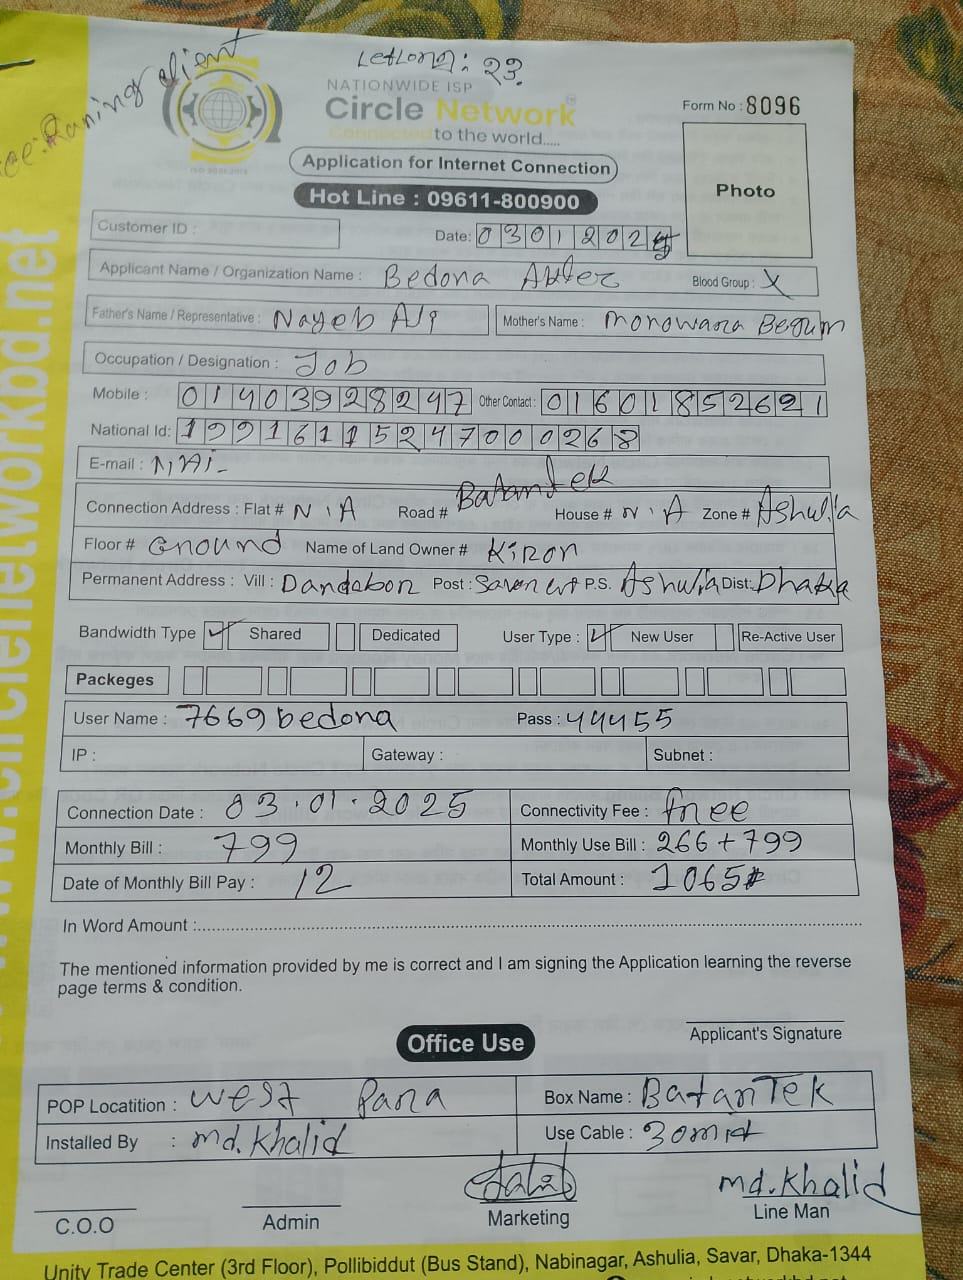 LetLong: 23.
Raning client
NATIONWIDE ISP
Circle Network
Connected to the world.....
Form No : 8096
Application for Internet Connection
Photo
Hot Line : 09611-800900
Customer ID :
Date: 03012025
Applicant Name / Organization Name : Bedona Akter
Blood Group : X
Father's Name / Representative : Nayeb Ali
Mother's Name : monowara Begum
Occupation / Designation : Job
Mobile : 01403928247 Other Contact : 01601852621
National Id: 19916115247000268
E-mail : N/A
Connection Address : Flat # N.A Road # Batantek House # N.A Zone # Ashulia
Floor # Ground Name of Land Owner # Kiron
Permanent Address : Vill : Dandabor Post : P.S. Ashulia Dist: Dhaka
Bandwidth Type ✓ Shared Dedicated User Type : ✓ New User Re-Active User
Packeges
User Name : 7669bedona Pass : 44455
IP : Gateway : Subnet :
Connection Date : 03.01.2025 Connectivity Fee : free
Monthly Bill : 799 Monthly Use Bill : 266+799
Date of Monthly Bill Pay : 12 Total Amount : 1065
In Word Amount :
The mentioned information provided by me is correct and I am signing the Application learning the reverse
page terms & condition.
Applicant's Signature
Office Use
POP Locatition : West Para Box Name : BatanTek
Installed By : md.khalid Use Cable : 30
md.khalid
C.O.O Admin Marketing Line Man
Unity Trade Center (3rd Floor), Pollibiddut (Bus Stand), Nabinagar, Ashulia, Savar, Dhaka-1344
www.circlenetworkbd.net